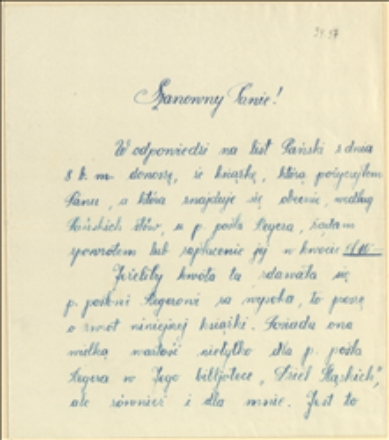 Szanowny Panie!
W odpowiedzi na list Pański z dnia
8 b. m. donoszę, że książkę, którą pożyczyłem
Panu, a która znajduje się obecnie, według
Pańskich słów, u p. posła Regera, żądam
spowrotem lub zapłacenie jej w kwocie
Jeżeliby kwota ta zdawała się
p. posłowi Regerowi za wysoka, to proszę
o zwrot niniejszej książki. Posiada ona
wielką wartość nietylko dla p. posła
Regera w Jego bibljotece „Dzieł Śląskich",
ale również i dla mnie. Jest to